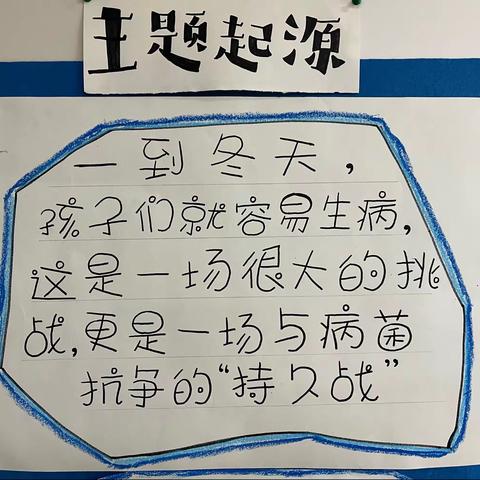 主题起源
一到冬天，
孩子们就容易生病，
这是一场很大的挑
战，更是一场与病菌
抗争的“持久战”